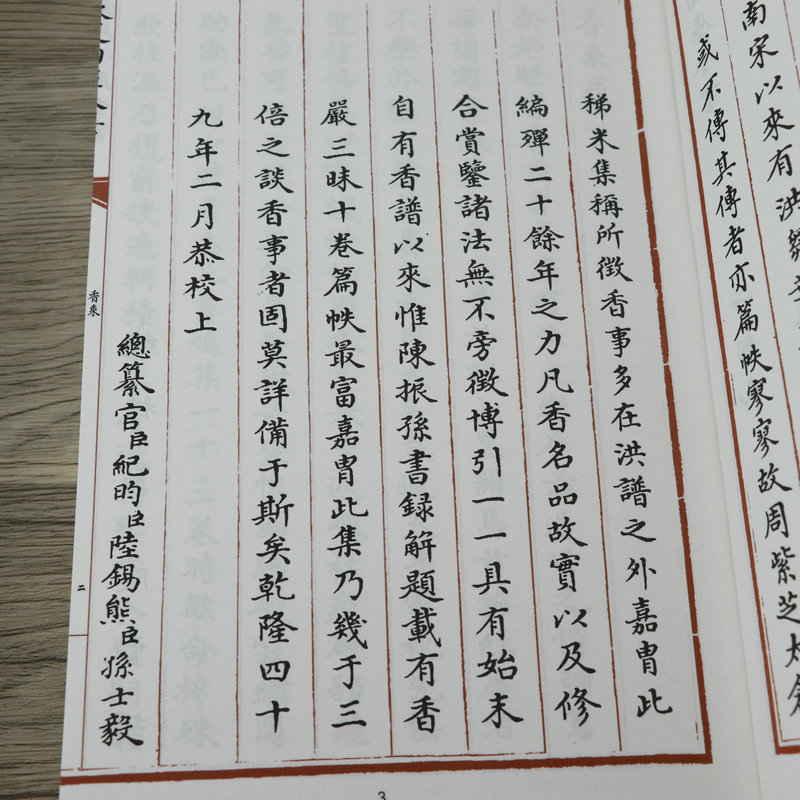 南宋以來有洪芻
或不傳其傳者亦篇帙寥寥故周紫芝太倉
稊米集稱所徵香事多在洪譜之外嘉胄此
編殫二十餘年之力凡香名品故實以及修
合賞鑒諸法無不旁徵博引一一具有始末
自有香譜以來惟陳振孫書録解題載有香
嚴三昧十卷篇帙最富嘉胄此集乃幾于三
倍之談香事者固莫詳備于斯矣乾隆四十
九年二月恭校上
總纂官臣紀昀臣陸錫熊臣孫士毅
香乘
二
3